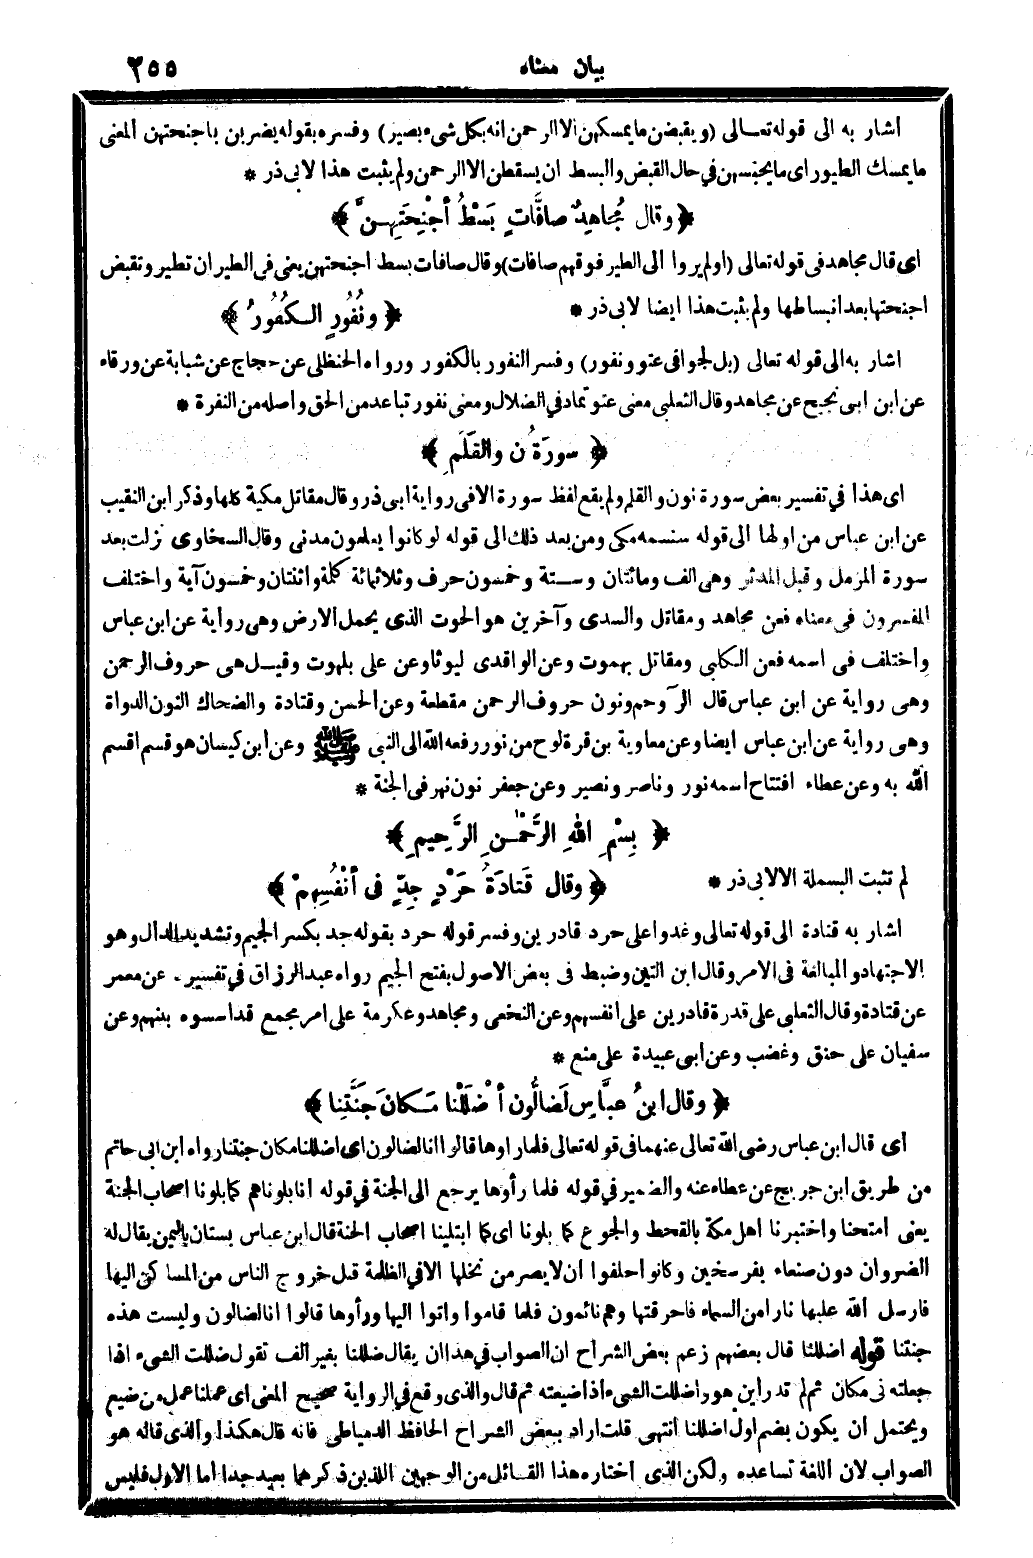 بيان معناه ٢٥٥
أشار به الى قوله تعالى (ويقبضن ما يمسكهن الا الرحمن انه بكل شيء بصير) وفسره بقوله يضربن باجنحتهن المعنى
ما يمسك الطيور اى ما يحبسهن في حال القبض والبسط ان يسقطن الا الرحمن ولم يثبت هذا لابى ذر *
﴿ وقال مُجاهِدٌ صافَّاتٍ بَسْطُ أجْنِحَتِهِنَّ ﴾
اى قال مجاهد فى قوله تعالى (اولم يروا الى الطير فوقهم صافات) وقال صافات بسط اجنحتهن يعنى فى الطيران تطير وتقبض
اجنحتها بعد انبساطها ولم يثبت هذا ايضا لابى ذر * ﴿ ونُفُورٍ الكُفُورُ ﴾
اشار به الى قوله تعالى (بل لجوا فى عتو ونفور) وفسر النفور بالكفور ورواه الحنظلى عن حجاج عن شبابة عن ورقاء
عن ابن ابى نجيح عن مجاهد وقال الثعلبى معنى عتو تماد في الضلال ومعنى نفور تباعد من الحق واصله من النفرة *
﴿ سورَةُ ن والقَلَمِ ﴾
اى هذا في تفسير بعض سورة نون والقلم ولم يقع لفظ سورة الا فى رواية ابى ذر وقال مقاتل مكية كلها وذكر ابن النقيب
عن ابن عباس من اولها الى قوله سنسمه مكى ومن بعد ذلك الى قوله لو كانوا يعلمون مدنى وقال السخاوى نزلت بعد
سورة المزمل وقبل المدثر وهى الف ومائتان وستة وخمسون حرف وثلاثمائة كلمة واثنتان وخمسون آية واختلف
المفسرون فى معناه فعن مجاهد ومقاتل والسدى وآخرين هو الحوت الذى يحمل الارض وهى رواية عن ابن عباس
واختلف فى اسمه فعن الكلبى ومقاتل بهموت وعن الواقدى ليوثا وعن على بلهوت وقيل هى حروف الرحمن
وهى رواية عن ابن عباس قال الر وحم ونون حروف الرحمن مقطعة وعن الحسن وقتادة والضحاك النون الدواة
وهى رواية عن ابن عباس ايضا وعن معاوية بن قرة لوح من نور رفعه الله الى النبى ﷺ وعن ابن كيسان هو قسم اقسم
الله به وعن عطاء افتتاح اسمه نور وناصر ونصير وعن جعفر نون نهر فى الجنة *
﴿ بِسْمِ اللهِ الرَّحْمٰنِ الرَّحِيمِ ﴾
لم تثبت البسملة الا لابى ذر * ﴿ وقال قَتادَةُ حَرْدٍ جِدٍّ فى أنْفُسِهِمْ ﴾
اشار به قتادة الى قوله تعالى وغدوا على حرد قادرين وفسر قوله حرد بقوله جد بكسر الجيم وتشديد الدال وهو
الاجتهاد والمبالغة فى الامر وقال ابن التين وضبط فى بعض الاصول بفتح الجيم رواه عبد الرزاق في تفسيره عن معمر
عن قتادة وقال الثعلبى على قدرة قادرين على انفسهم وعن النخعى ومجاهد وعكرمة على امر مجمع قد اسسوه بينهم وعن
سفيان على حنق وغضب وعن ابى عبيدة على منع *
﴿ وقال ابنُ عبَّاسٍ لَضالُّون أضْلَلْنا مَكانَ جَنَّتِنا ﴾
أى قال ابن عباس رضى الله تعالى عنهما فى قوله تعالى فلما راوها قالوا انا لضالون اى اضللنا مكان جنتنا رواه ابن ابى حاتم
من طريق ابن جريج عن عطاء عنه والضمير في قوله فلما رأوها يرجع الى الجنة في قوله انا بلوناهم كما بلونا اصحاب الجنة
يعنى امتحنا واختبرنا اهل مكة بالقحط والجوع كما بلونا اى كما ابتلينا اصحاب الجنة قال ابن عباس بستان باليمن يقال له
الضروان دون صنعاء بفرسخين وكانوا حلفوا ان لا يصرمن نخلها الا في الظلمة قبل خروج الناس من المساكن اليها
فارسل الله عليها نارا من السماء فاحرقتها وهم نائمون فلما قاموا واتوا اليها ورأوها قالوا انا لضالون وليست هذه
جنتنا قوله اضللنا قال بعضهم زعم بعض الشراح ان الصواب في هذا ان يقال ضللنا بغير الف تقول ضللت الشىء اذا
جعلته فى مكان ثم لم تدر اين هو واضللت الشىء اذا ضيعته ثم قال والذى وقع في الرواية صحيح المعنى اى عملنا عمل من ضيع
ويحتمل أن يكون بضم اول اضللنا انتهى قلت اراد ببعض الشراح الحافظ الدمياطى فانه قال هكذا والذى قاله هو
الصواب لان اللغة تساعده ولكن الذى اختاره هذا القائل من الوجهين اللذين ذكرهما بعيد جدا اما الاول فليس